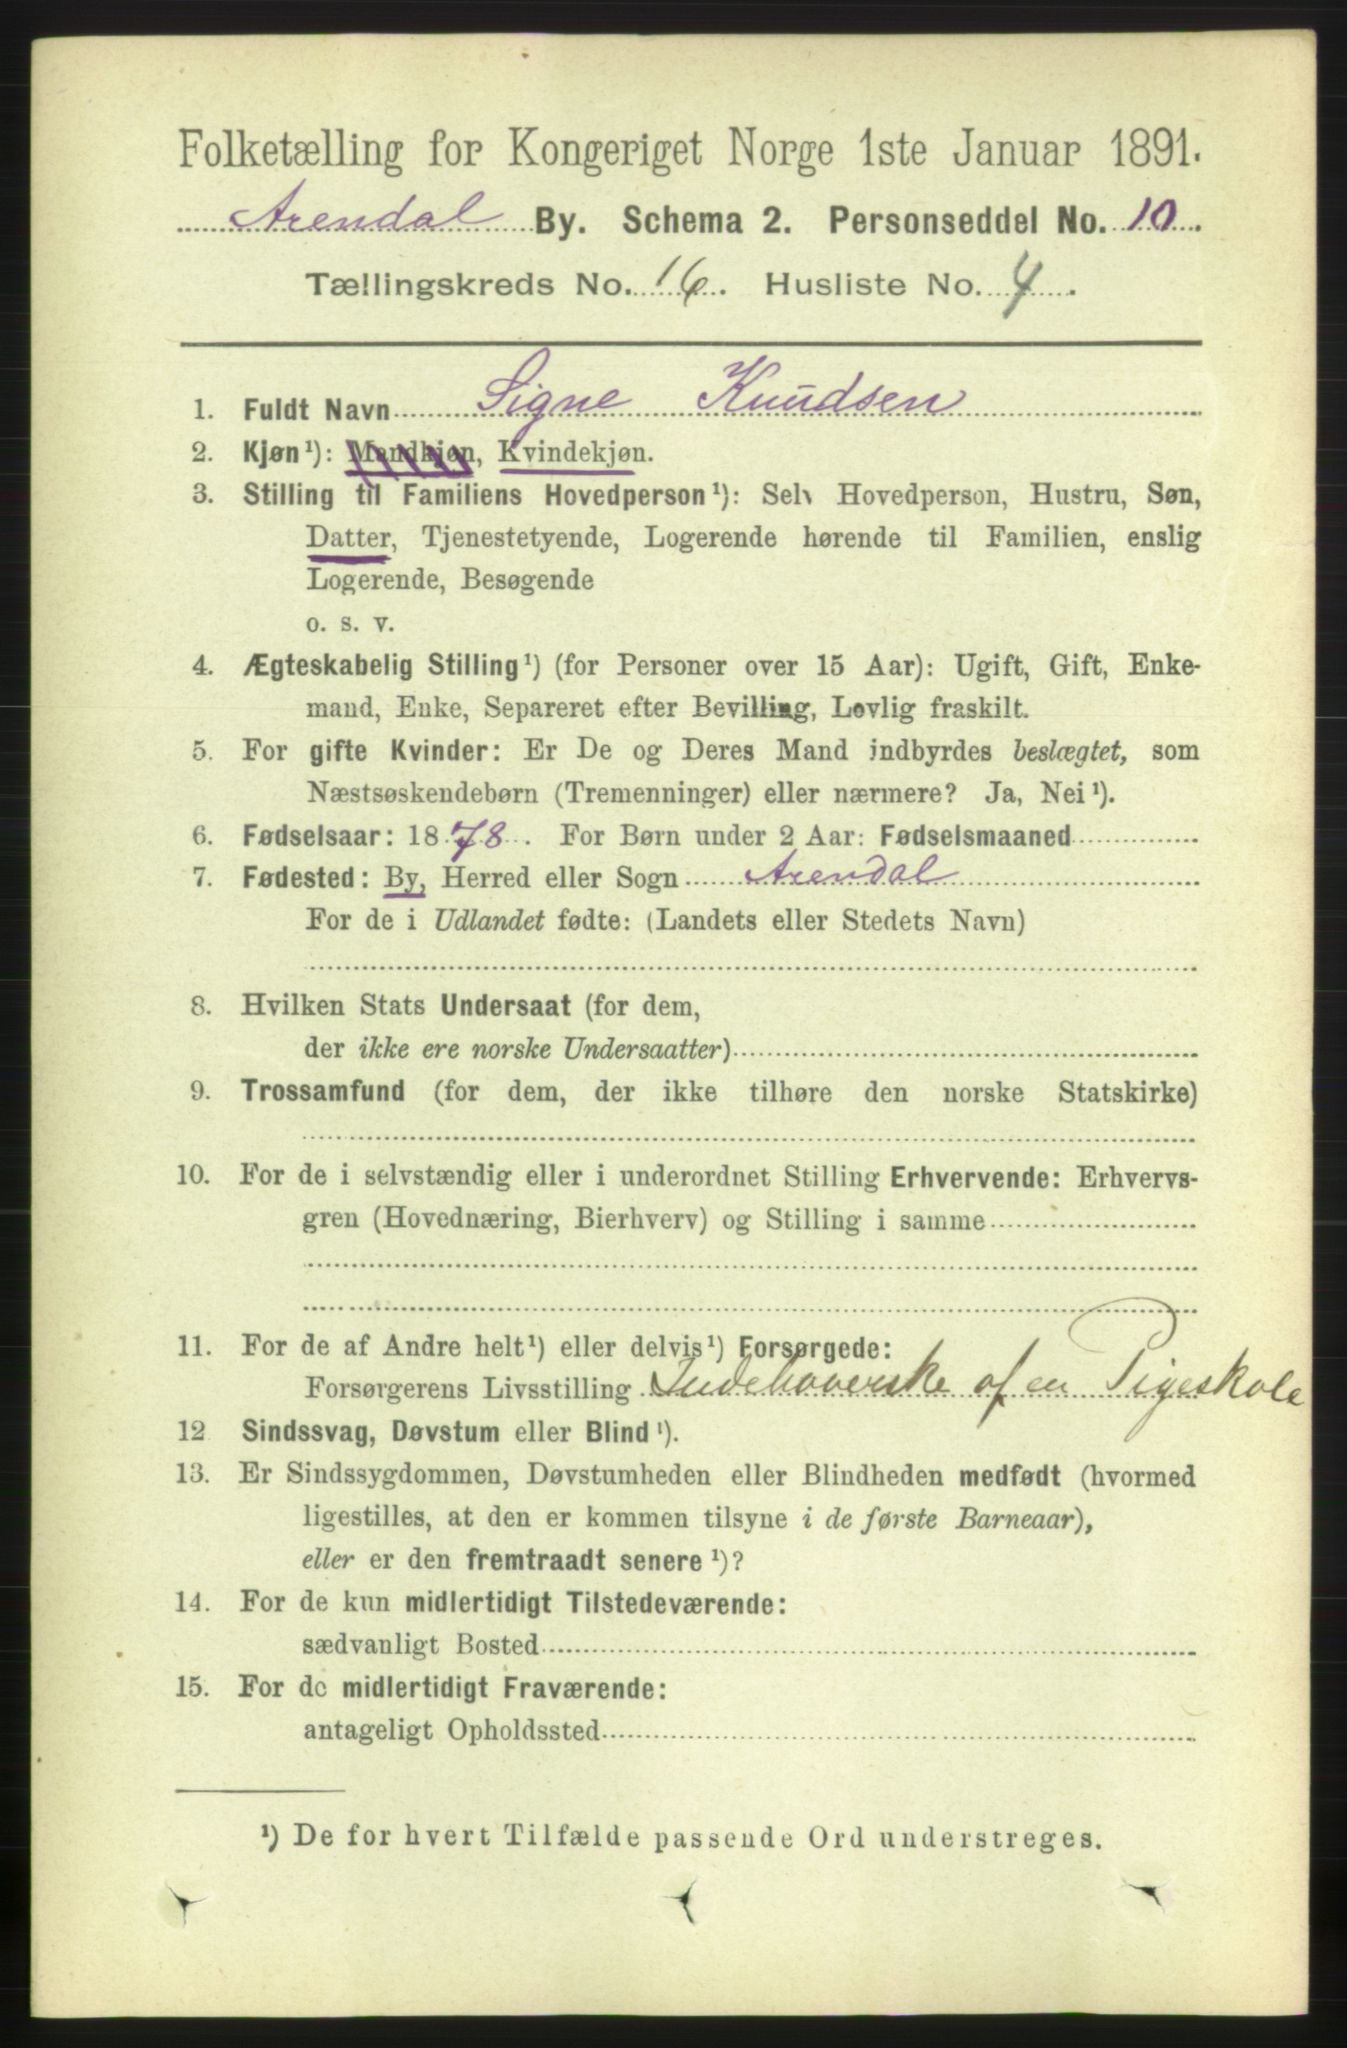 Folketælling for Kongeriget Norge 1ste Januar 1891.
Arendal By. Schema 2. Personseddel No. 10.
Tællingskreds No. 16. Husliste No. 4.
1. Fuldt Navn Signe Knudsen
2. Kjøn¹): Mandkjøn, Kvindekjøn.
3. Stilling til Familiens Hovedperson¹): Selv Hovedperson, Hustru, Søn,
Datter, Tjenestetyende, Logerende hørende til Familien, enslig
Logerende, Besøgende
o. s. v.
4. Ægteskabelig Stilling¹) (for Personer over 15 Aar): Ugift, Gift, Enke-
mand, Enke, Separeret efter Bevilling, Lovlig fraskilt.
5. For gifte Kvinder: Er De og Deres Mand indbyrdes beslægtet, som
Næstsøskendebørn (Tremenninger) eller nærmere? Ja, Nei¹).
6. Fødselsaar: 1878. For Børn under 2 Aar: Fødselsmaaned
7. Fødested: By, Herred eller Sogn Arendal
For de i Udlandet fødte: (Landets eller Stedets Navn)
8. Hvilken Stats Undersaat (for dem,
der ikke ere norske Undersaatter)
9. Trossamfund (for dem, der ikke tilhøre den norske Statskirke)
10. For de i selvstændig eller i underordnet Stilling Erhvervende: Erhvervs-
gren (Hovednæring, Bierhverv) og Stilling i samme
11. For de af Andre helt¹) eller delvis¹) Forsørgede:
Forsørgerens Livsstilling Indehaverske af en Pigeskole
12 Sindssvag, Døvstum eller Blind¹).
13. Er Sindssygdommen, Døvstumheden eller Blindheden medfødt (hvormed
ligestilles, at den er kommen tilsyne i de første Barneaar),
eller er den fremtraadt senere¹)?
14. For de kun midlertidigt Tilstedeværende:
sædvanligt Bosted
15. For de midlertidigt Fraværende:
antageligt Opholdssted
¹) De for hvert Tilfælde passende Ord understreges.